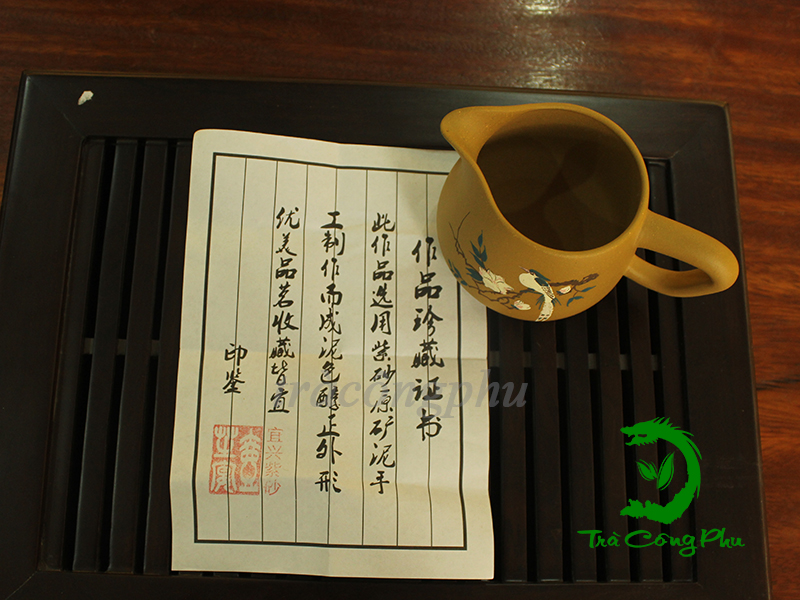 作品珍藏证书
此作品选用紫砂原矿泥手
工制作而成泥色醇正外形
优美品茗收藏皆宜
印鉴
宜兴紫砂
tracongphu
Trà Công Phu